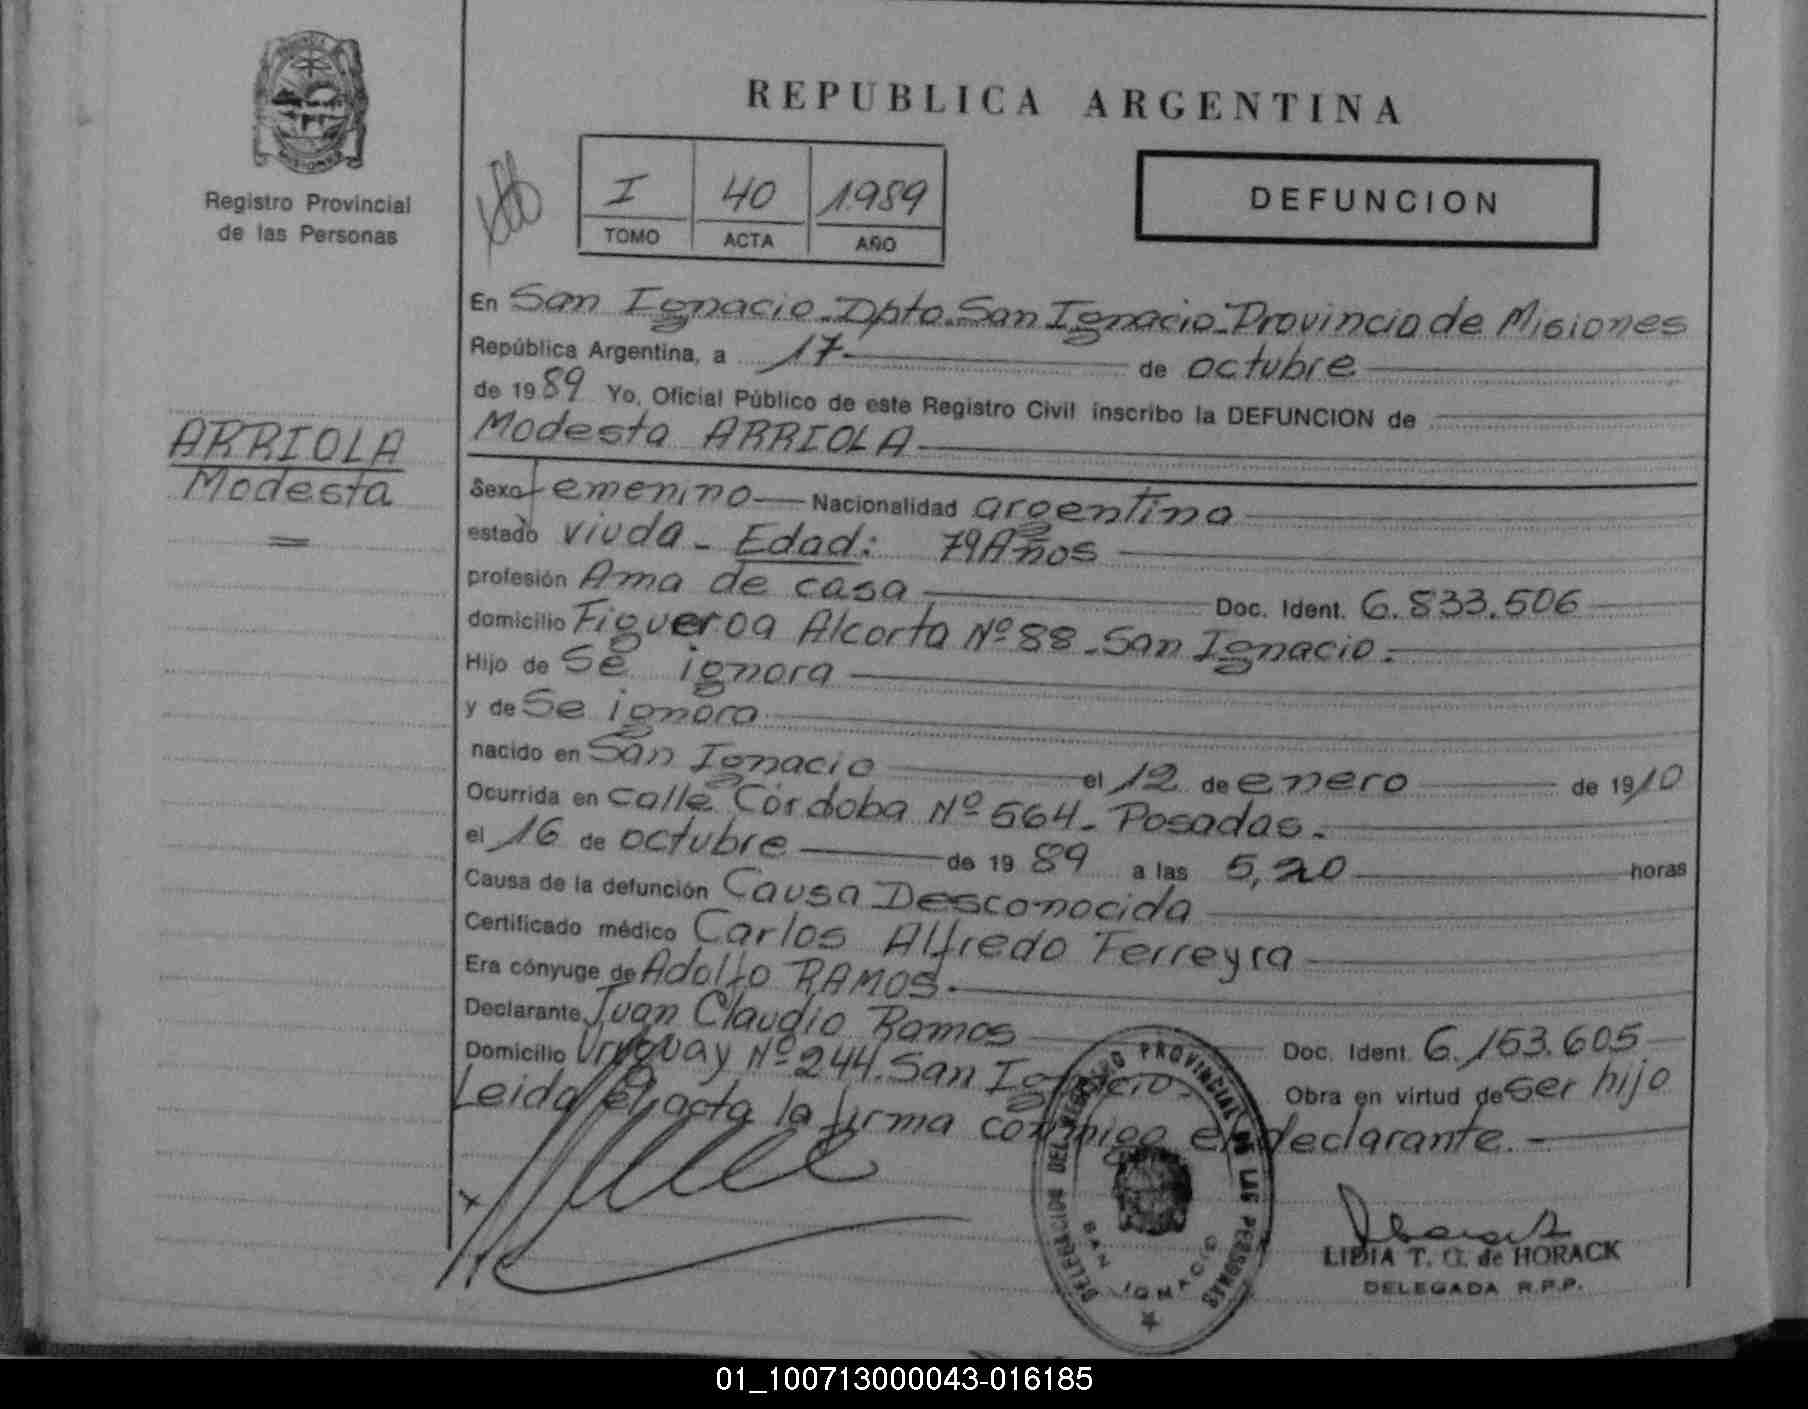 PROVINCIA
MISIONES
Registro Provincial
de las Personas
REPUBLICA ARGENTINA
I 40 1.989
TOMO ACTA AÑO
DEFUNCION
En San Ignacio. Dpto. San Ignacio. Provincia de Misiones
República Argentina, a 17 de octubre
de 1989 Yo, Oficial Público de este Registro Civil inscribo la DEFUNCION de
Modesta ARRIOLA
ARRIOLA
Modesta
Sexo femenino Nacionalidad argentina
estado viuda - Edad: 79 Años
profesión Ama de casa Doc. Ident. 6.833.506
domicilio Figueroa Alcorta Nº 88 - San Ignacio.
Hijo de Se ignora
y de Se ignora
nacido en San Ignacio el 12 de enero de 1910
Ocurrida en calle Córdoba Nº 564. Posadas.
el 16 de octubre de 1989 a las 5,20 horas
Causa de la defunción Causa Desconocida
Certificado médico Carlos Alfredo Ferreyra
Era cónyuge de Adolfo RAMOS.
Declarante Juan Claudio Ramos Doc. Ident. 6.153.605
Domicilio Uruguay Nº 244. San Ignacio. Obra en virtud de Ser hijo
Leida el acta la firma conmigo el declarante.
DELEGACION DEL REGISTRO PROVINCIAL DE LAS PERSONAS
SAN IGNACIO
LIDIA T. G. de HORACK
DELEGADA R.P.P.
01_100713000043-016185